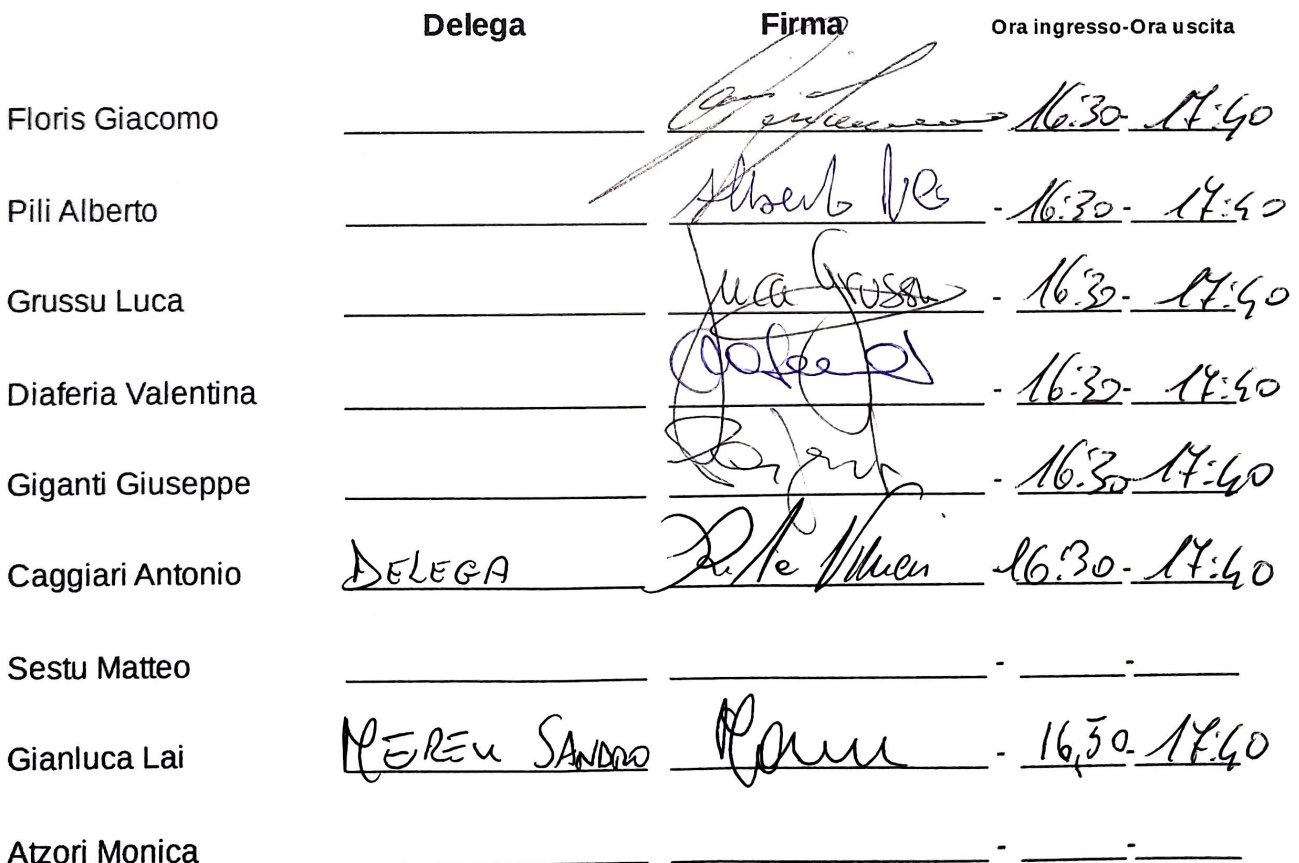 Delega Firma Ora ingresso-Ora uscita
Floris Giacomo 16:30- 17:40
Pili Alberto Alberto - 16:30- 17:40
Grussu Luca Luca Grussu - 16:30- 17:40
Diaferia Valentina - 16:30- 17:40
Giganti Giuseppe - 16:30 17:40
Caggiari Antonio DELEGA 16:30- 17:40
Sestu Matteo - -
Gianluca Lai MEREU SANDRO - 16,30- 17:40
Atzori Monica - -